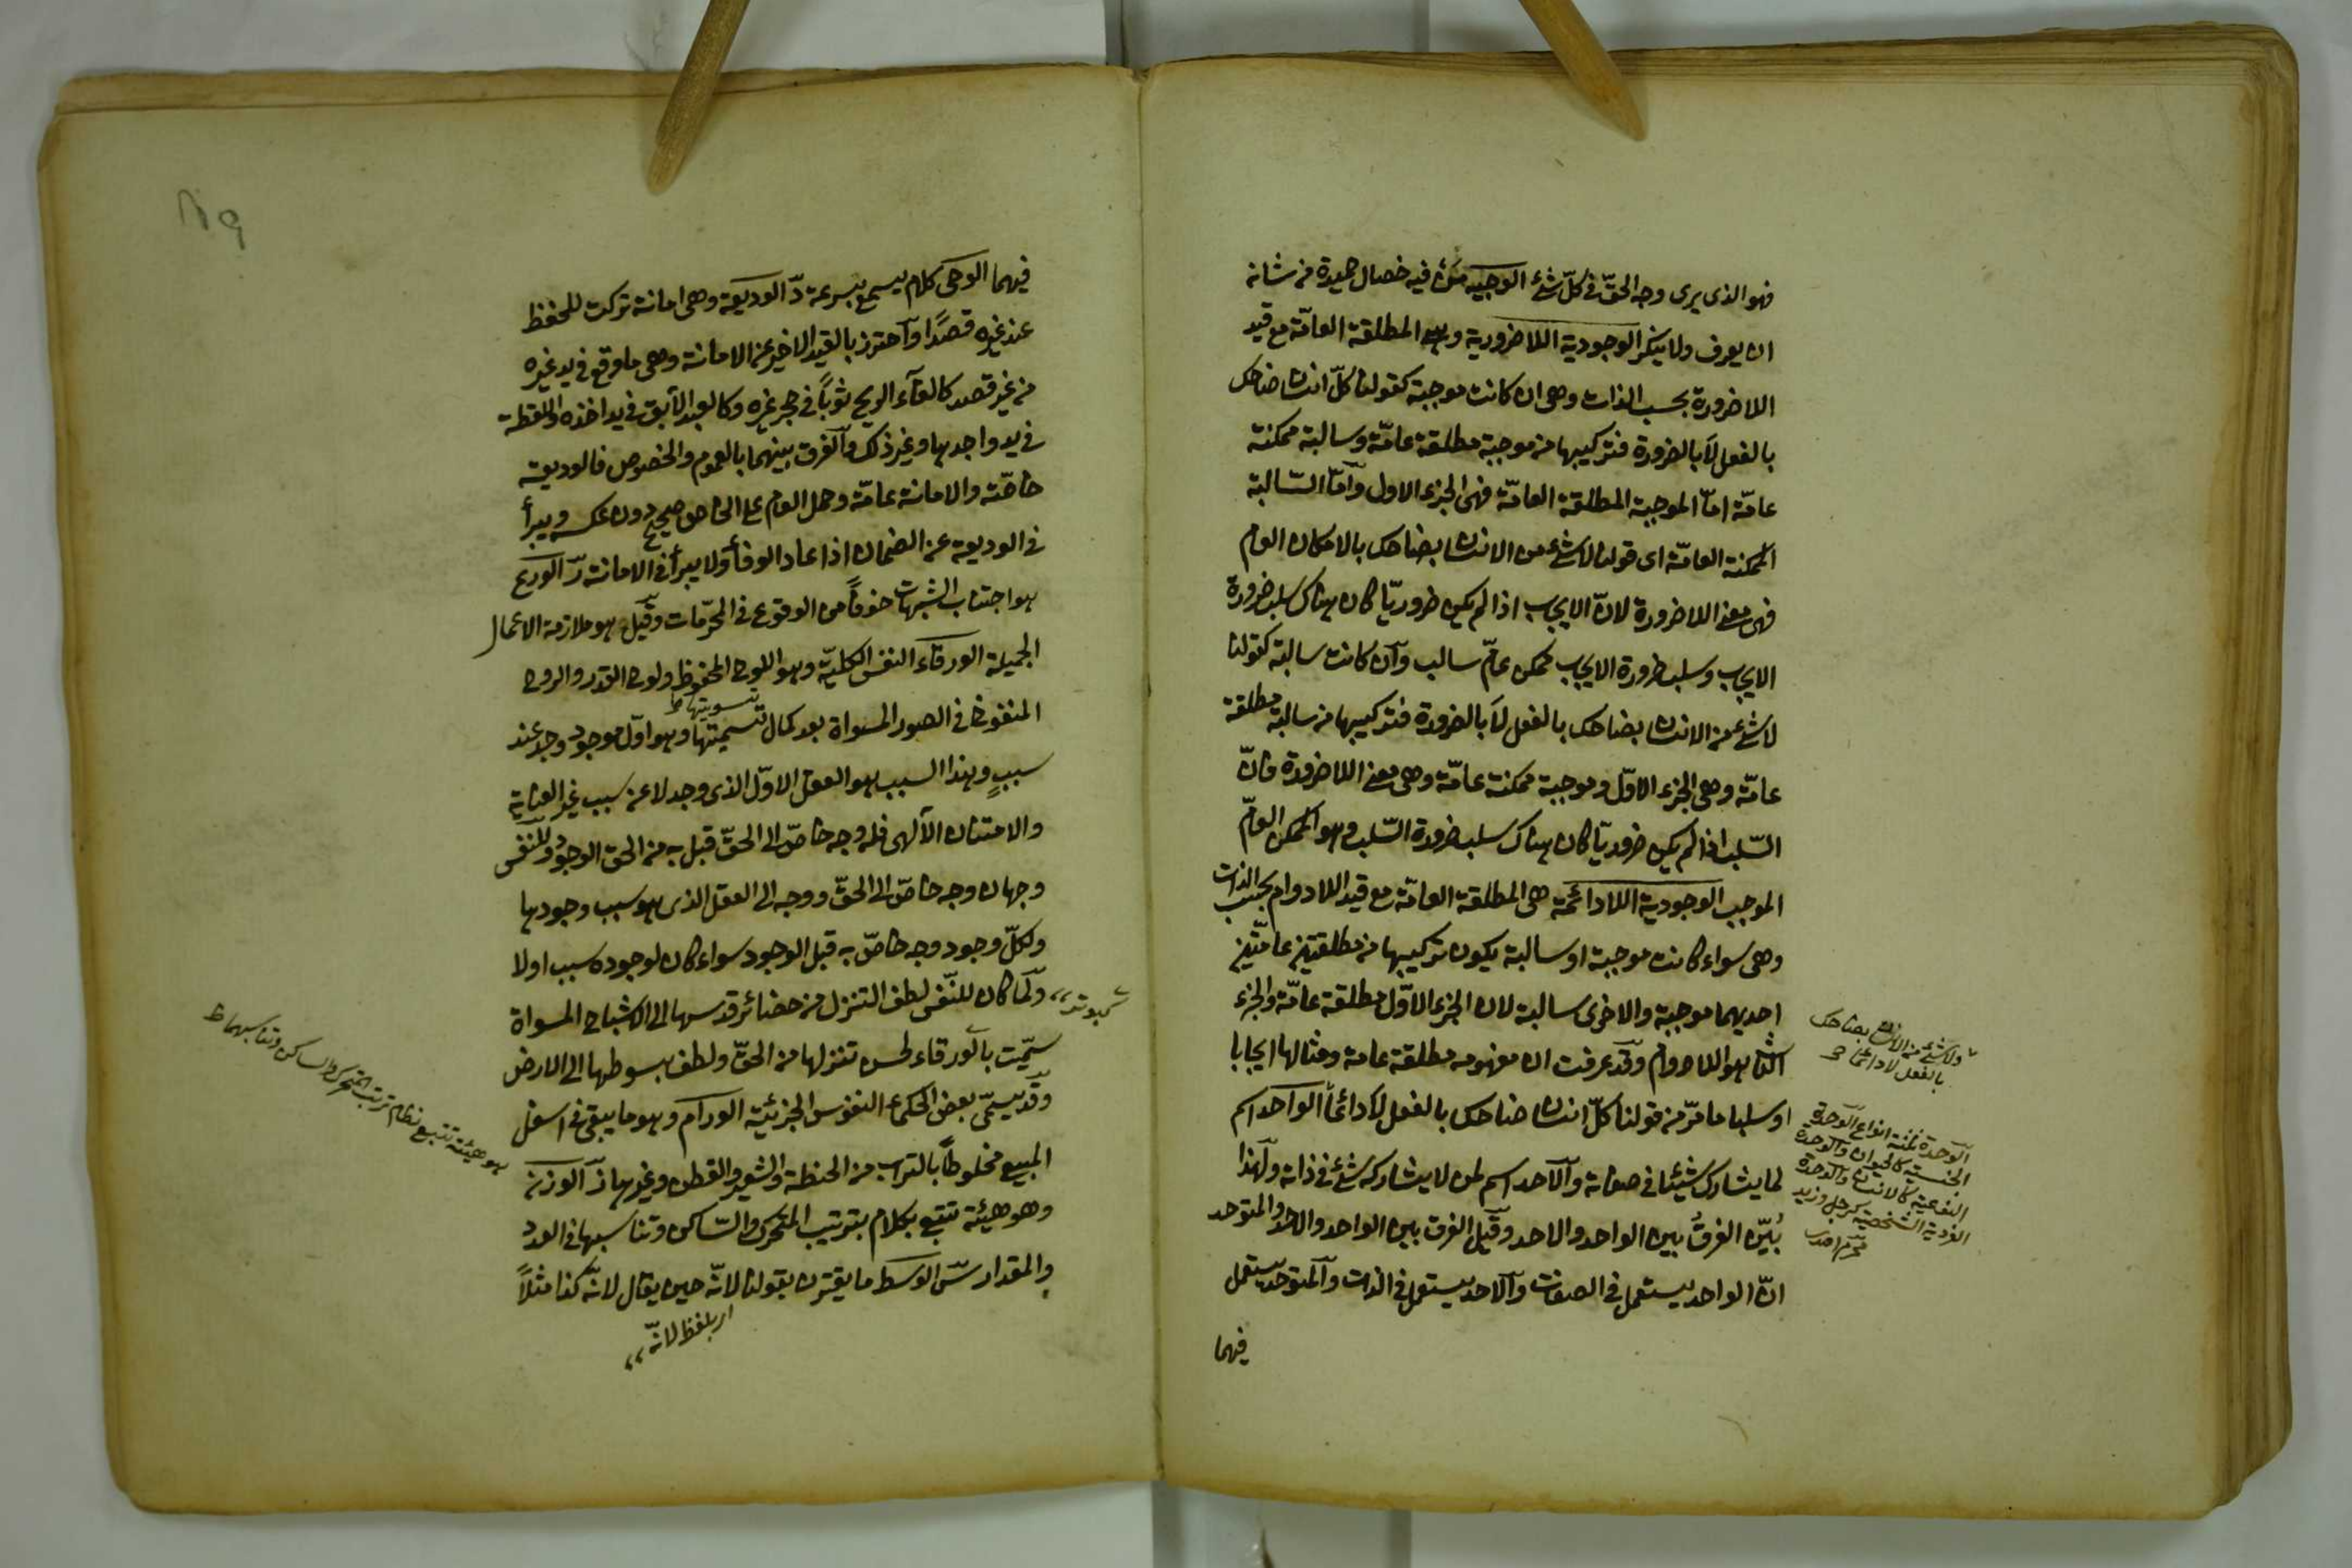 فهو الذى يرى وجه الحقّ فى كلّ شئ الوجيه من فيه خصال حميدة من شانه
ان يعرف ولا ينكر الوجودية اللاضرورية وهو المطلقة العامّة مع قيد
اللاضرورة بحسب الذات وهى ان كانت موجبة كقولنا كلّ انسان ضاحك
بالفعل لا بالضرورة فتركيبها من موجبة مطلقة عامّة وسالبة ممكنة
عامّة امّا الموجبة المطلقة العامّة فهى الجزء الاول وامّا السّالبة
الممكنة العامّة اى قولنا لا شئ من الانسان بضاحك بالامكان العام
فهى معنى اللاضرورة لانّ الايجاب اذا لم يكن ضروريّا كان هناك سلب ضرورة
الايجاب وسلب ضرورة الايجاب ممكن عامّ سالب وان كانت سالبة كقولنا
لا شئ من الانسان بضاحك بالفعل لا بالضرورة فتركيبها من سالبة مطلقة
عامّة وهى الجزء الاوّل وموجبة ممكنة عامّة وهى معنى اللاضرورة فانّ
السّلب اذا لم يكن ضروريّا كان هناك سلب ضرورة السّلب وهو الممكن العامّ
الموجب الوجودية اللادائمة هى المطلقة العامّة مع قيد اللادوام بحسب الذات
وهى سواء كانت موجبة او سالبة يكون تركيبها من مطلقتين عامّتين
احديهما موجبة والاخرى سالبة لان الجزء الاوّل مطلقة عامّة والجزء
الثانى هو اللادوام وقد عرفت ان مفهومه مطلقة عامة ومثالها ايجابا
او سلبا ما مرّ من قولنا كلّ انسان ضاحك بالفعل لا دائماً الواحد اسم
لما يشارك شيئا فى صفاته والاحد اسم لمن لا يشاركه شئ فى ذاته ولهذا
بُيّن الفرقُ بين الواحد والاحد وقيل الفرق بين الواحد والاحد والمتوحد
انّ الواحد يستعمل فى الصفات والاحد يستعمل فى الذات والمتوحّد يستعمل
فيهما
ولا شئ من الانسان بضاحك
بالفعل لا دائما صح
الوحدة ثلثة انواع الوحدة
الجنسية كالحيوان والوحدة
النوعية كالانسان والوحدة
الفردية الشخصية كرجل وزيد
فيهما الوحى كلام يسمع بسرعة دّ الوديعة وهى امانة تركت للحفظ
عند غيره قصدًا واحترز بالقيد الاخير عن الامانة وهى ما وقع فى يد غيره
من غير قصد كالقاء الريح ثوباً فى حجر غيره وكالعبد الآبق فى يد اخذه واللقطة
فى يد واجدها وغير ذلك والفرق بينهما بالعموم والخصوص فالوديعة
خاصّة والامانة عامّة وحمل العام على الخاص صحيح دون عكسه ويبرأ
فى الوديعة عن الضمان اذا عاد الوفاق ولا يبرأ فى الامانة رّ الورع
هو اجتناب الشبهات خوفاً من الوقوع فى المحرّمات وقيل هو ملازمة الاعمال
الجميلة الورقاء النفس الكليّة وهو اللوح المحفوظ ولوح القدر والروح
المنفوخ فى الصور المسواة بعد كمال تسميتها وهو اوّل موجود وجد عند
تسويتها ط
سببٍ وهذا السبب هو العقل الاوّل الذى وجد لا عن سبب غير العناية
والامتنان الآلهى فله وجه خاصّ الى الحقّ قبل به من الحق الوجود وللنفس
وجهان وجه خاصّ الى الحقّ ووجه الى العقل الذى هو سبب وجودها
ولكلّ وجود وجه خاصّ به قبل الوجود سواء كان لوجوده سبب اولا
ولمّا كان للنّفس لطف التنزل من حضائر قدسها الى الاشباح المسواة
سمّيت بالورقاء لحسن تنزلها من الحقّ ولطف بسوطها الى الارض
وقد يسمّى بعض الحكماء النفوس الجزئية الورام وهو ما يبقى فى اسفل
المبيع مخلوطاً بالتراب من الحنطة والشعير والقطن وغيرها ذّ الوزن
وهو هيئة تتبع بكلام بترتيب المتحرك والسّاكن وتناسبها فى العدد
والمقدار سّ الوسط ما يقترن بقولنا لانّه حين يقال لانّه كذا مثلاً
بلفظ لانّه
هو هيئة تتبع نظام ترتيب المتحرك والساكن وتناسبهما ط